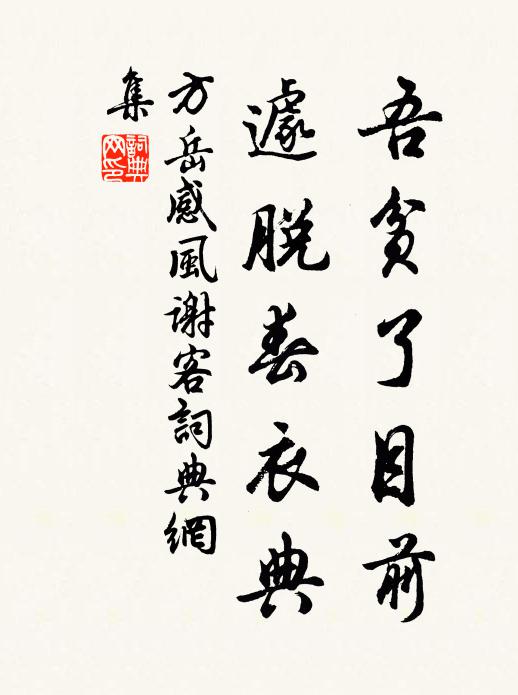 吾貧了目前
遽脱春衣典
方岳感風谢客詞典網
集
詞典網印